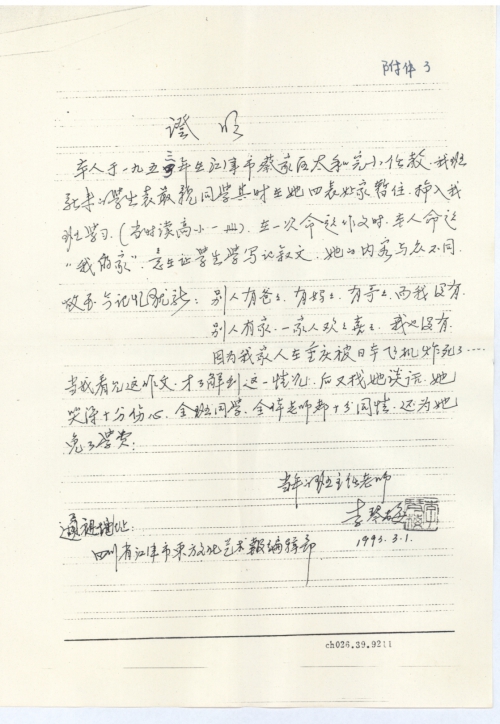 附件3
證明
本人于一九五三年在江津市蔡家区太和完小任教.我班
学生袁 同学其时在她四表叔家暂住.插入我
班学习.(当时读高小一册).在一次命题作文时.本人命题
"我的家".意在让学生学写记叙文.她的内容与众不同.
故至今记忆犹新:别人有爸爸.有妈妈.有哥哥.而我没有.
别人有家.一家人欢欢喜喜.我也没有.
因为我家人在重庆被日本飞机炸死了……
当我看完这作文.才了解到这一情况.后又找她谈话.她
哭得十分伤心.全班同学.全体老师都十分同情.还为她
免了学费.
当年的班主任老师
李琴梅
1993.3.1.
通讯地址:
四川省江津市东方文化艺术報编辑部
ch026.39.9211